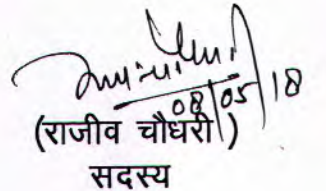 08/05/18
(राजीव चौधरी)
सदस्य